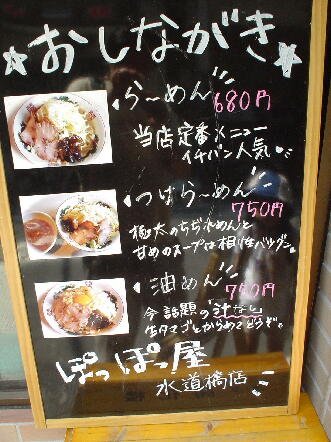 おしながき
らーめん 680円
当店定番メニュー
イチバン人気
つけらーめん 750円
極太のちぢれめんと
甘めのスープは相性バツグン。
油めん 750円
今話題の"汁なし"
生タマゴとからめてどうぞ。
ぽっぽっ屋
水道橋店